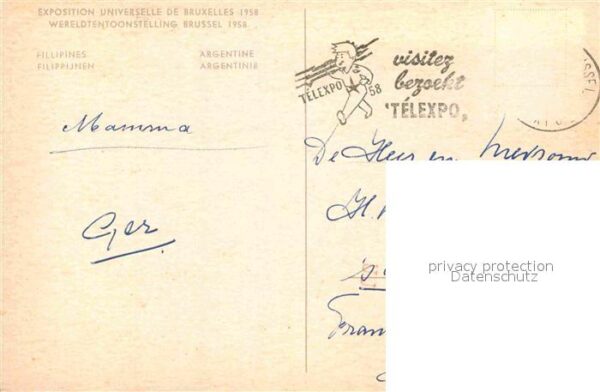 EXPOSITION UNIVERSELLE DE BRUXELLES 1958
WERELDTENTOONSTELLING BRUSSEL 1958
FILLIPINES ARGENTINE
FILIPPIJNEN ARGENTINIE
TÉLEXPO 58
visitez
bezoekt
'TÉLEXPO,
Mamma
Ger
De Heer en Mevrouw
H.
privacy protection
Datenschutz